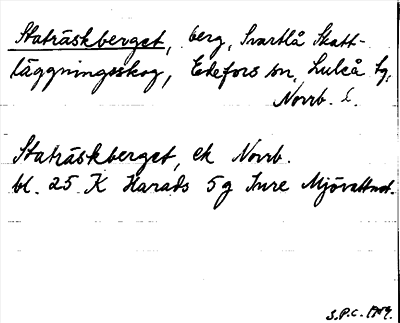 Staträskberget, berg, Svartlå Skatt-
läggningsskog, Edefors sn, Luleå tg,
Norrb. l.
Staträskberget, ek Norrb.
bl. 25 K Harads 5g Inre Mjövattnet.
S.P.C.